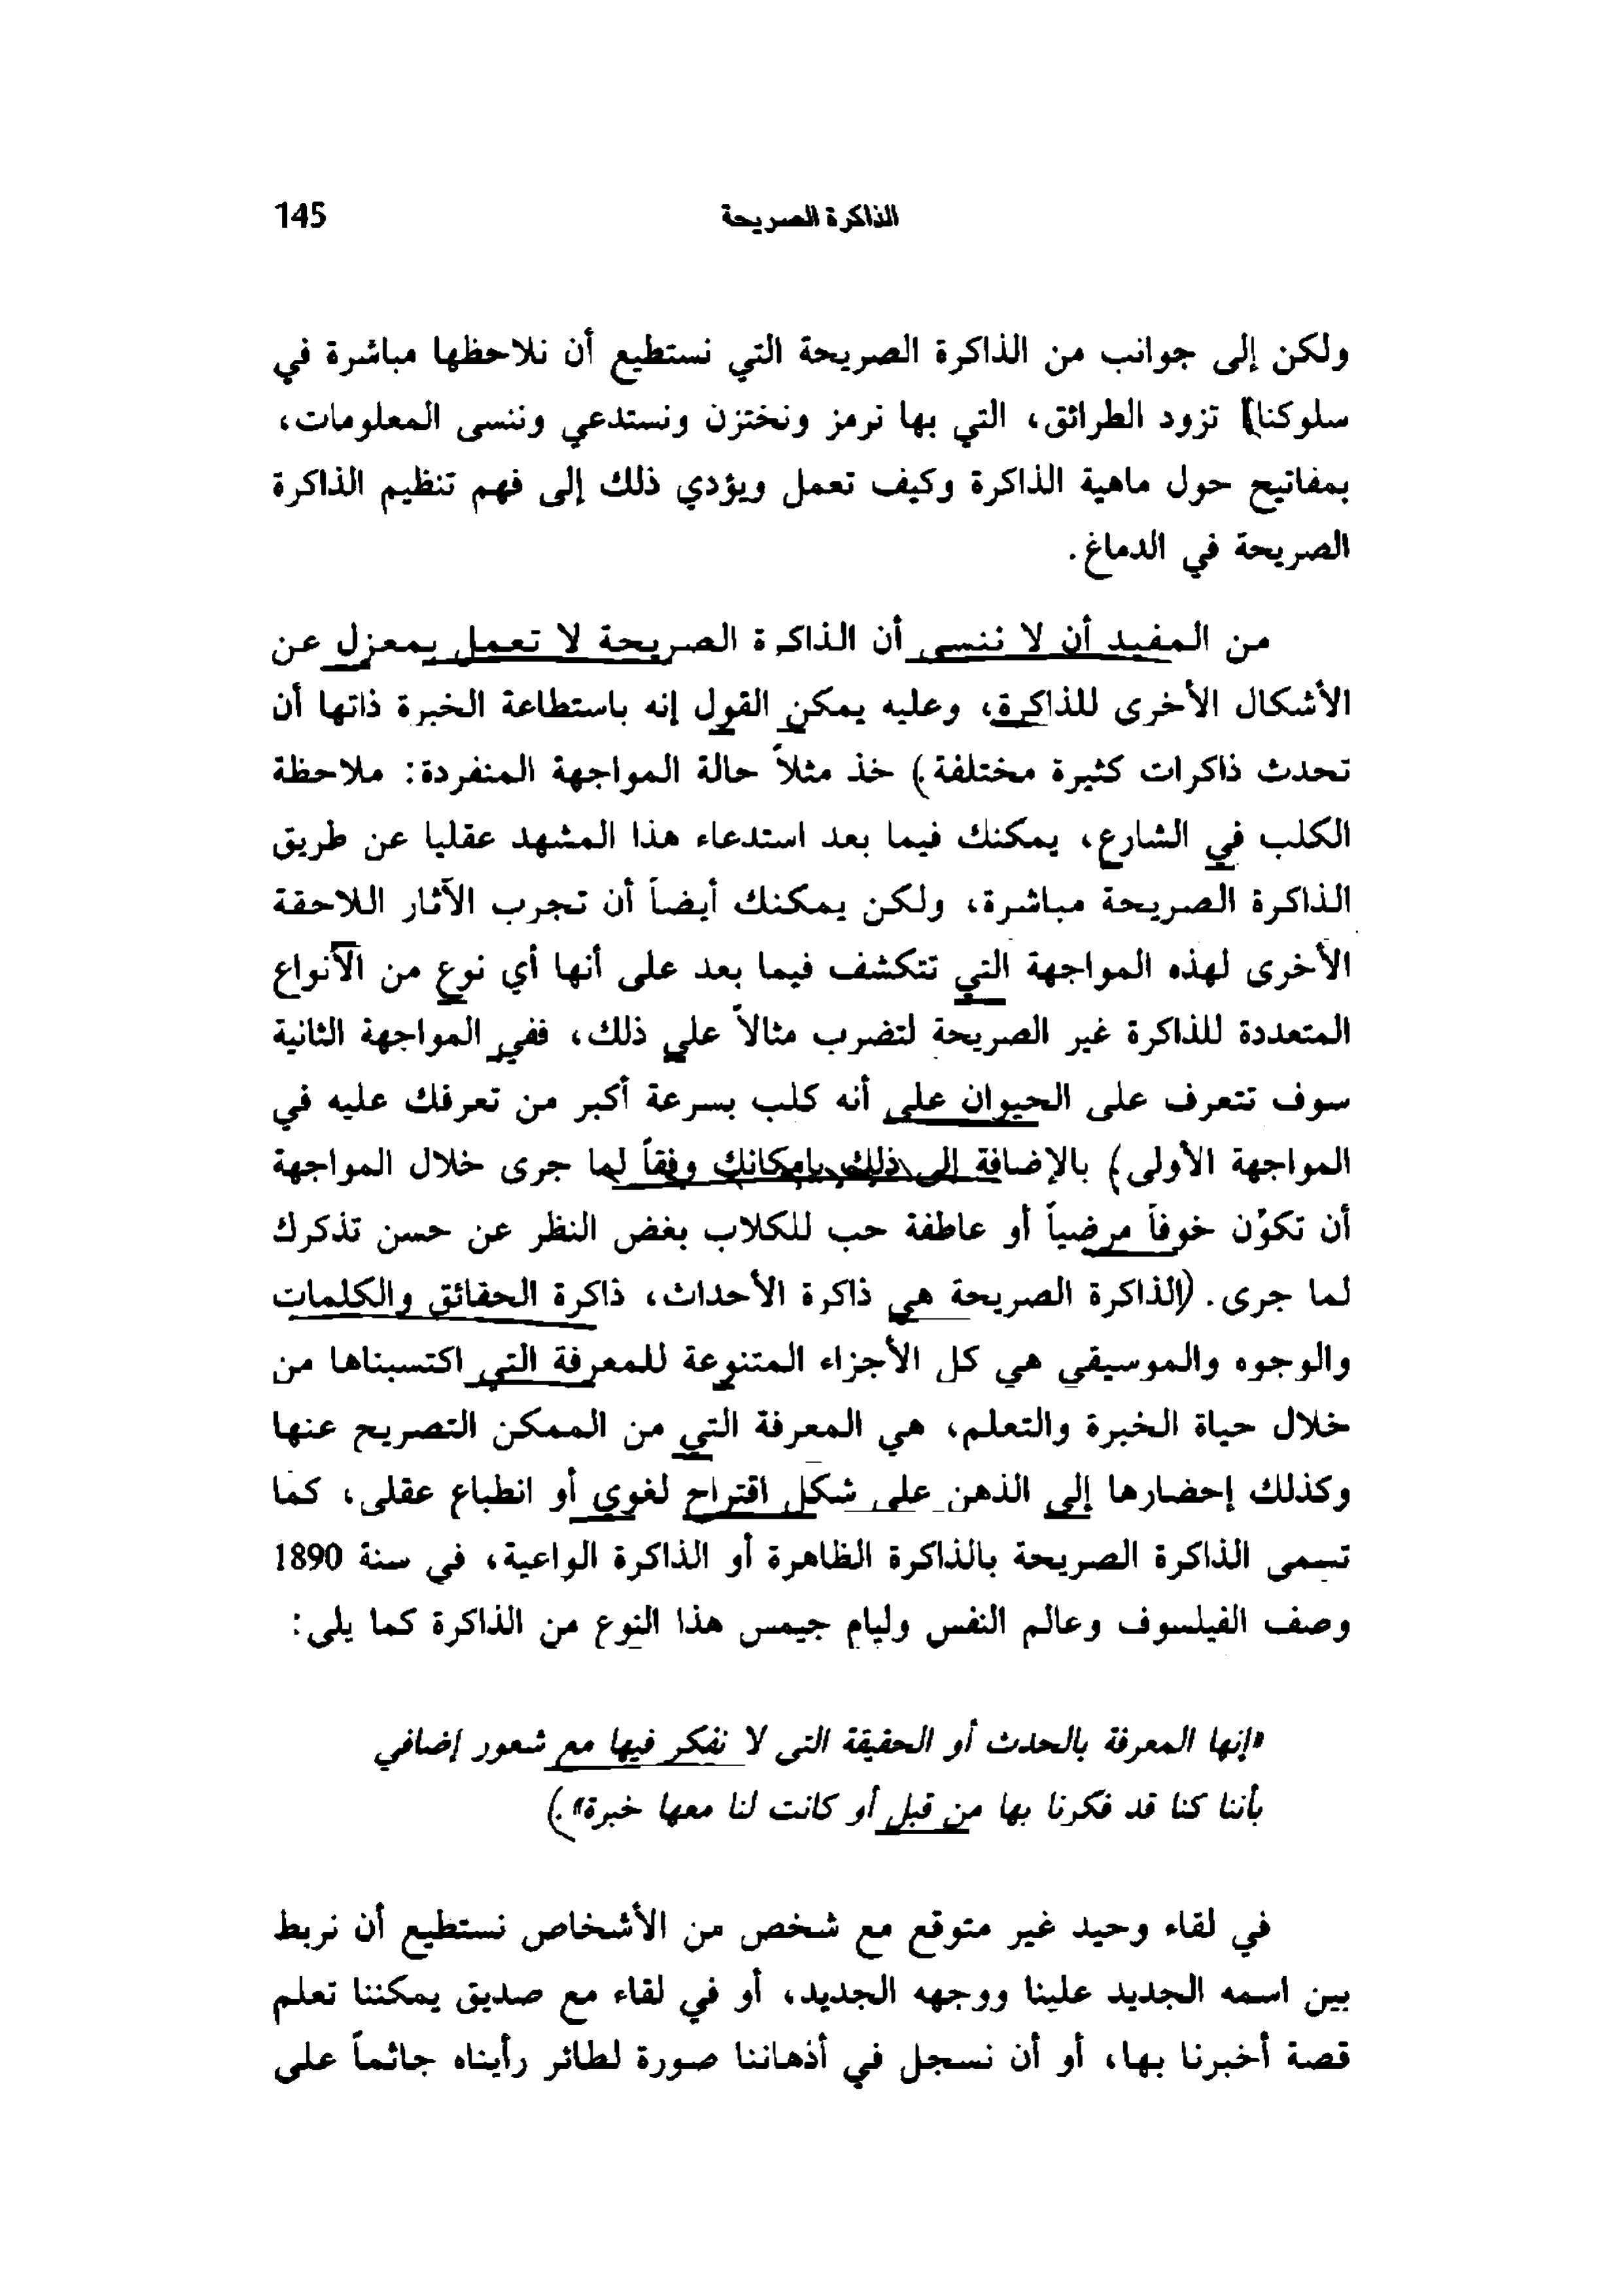 الذاكرة الصريحة 145
ولكن إلى جوانب من الذاكرة الصريحة التي نستطيع أن نلاحظها مباشرة في
سلوكنا) تزود الطرائق، التي بها نرمز ونختزن ونستدعي وننسى المعلومات،
بمفاتيح حول ماهية الذاكرة وكيف تعمل ويؤدي ذلك إلى فهم تنظيم الذاكرة
الصريحة في الدماغ.
من المفيد أن لا ننسى أن الذاكرة الصريحة لا تعمل بمعزل عن
الأشكال الأخرى للذاكرة، وعليه يمكن القول إنه باستطاعة الخبرة ذاتها أن
تحدث ذاكرات كثيرة مختلفة.) خذ مثلاً حالة المواجهة المنفردة: ملاحظة
الكلب في الشارع، يمكنك فيما بعد استدعاء هذا المشهد عقليا عن طريق
الذاكرة الصريحة مباشرة، ولكن يمكنك أيضاً أن تجرب الآثار اللاحقة
الأخرى لهذه المواجهة التي تتكشف فيما بعد على أنها أي نوع من الأنواع
المتعددة للذاكرة غير الصريحة لتضرب مثالاً على ذلك، ففي المواجهة الثانية
سوف تتعرف على الحيوان على أنه كلب بسرعة أكبر من تعرفك عليه في
المواجهة الأولى) بالإضافة إلى ذلك بإمكانك وفقاً لما جرى خلال المواجهة
أن تكوّن خوفاً مرضياً أو عاطفة حب للكلاب بغض النظر عن حسن تذكرك
لما جرى. (الذاكرة الصريحة هي ذاكرة الأحداث، ذاكرة الحقائق والكلمات
والوجوه والموسيقي هي كل الأجزاء المتنوعة للمعرفة التي اكتسبناها من
خلال حياة الخبرة والتعلم، هي المعرفة التي من الممكن التصريح عنها
وكذلك إحضارها إلى الذهن على شكل اقتراح لغوي أو انطباع عقلي، كما
تسمى الذاكرة الصريحة بالذاكرة الظاهرة أو الذاكرة الواعية، في سنة 1890
وصف الفيلسوف وعالم النفس وليام جيمس هذا النوع من الذاكرة كما يلي:
«إنها المعرفة بالحدث أو الحقيقة التي لا نفكر فيها مع شعور إضافي
بأننا كنا قد فكرنا بها من قبل أو كانت لنا معها خبرة».)
في لقاء وحيد غير متوقع مع شخص من الأشخاص نستطيع أن نربط
بين اسمه الجديد علينا ووجهه الجديد، أو في لقاء مع صديق يمكننا تعلم
قصة أخبرنا بها، أو أن نسجل في أذهاننا صورة لطائر رأيناه جاثماً على